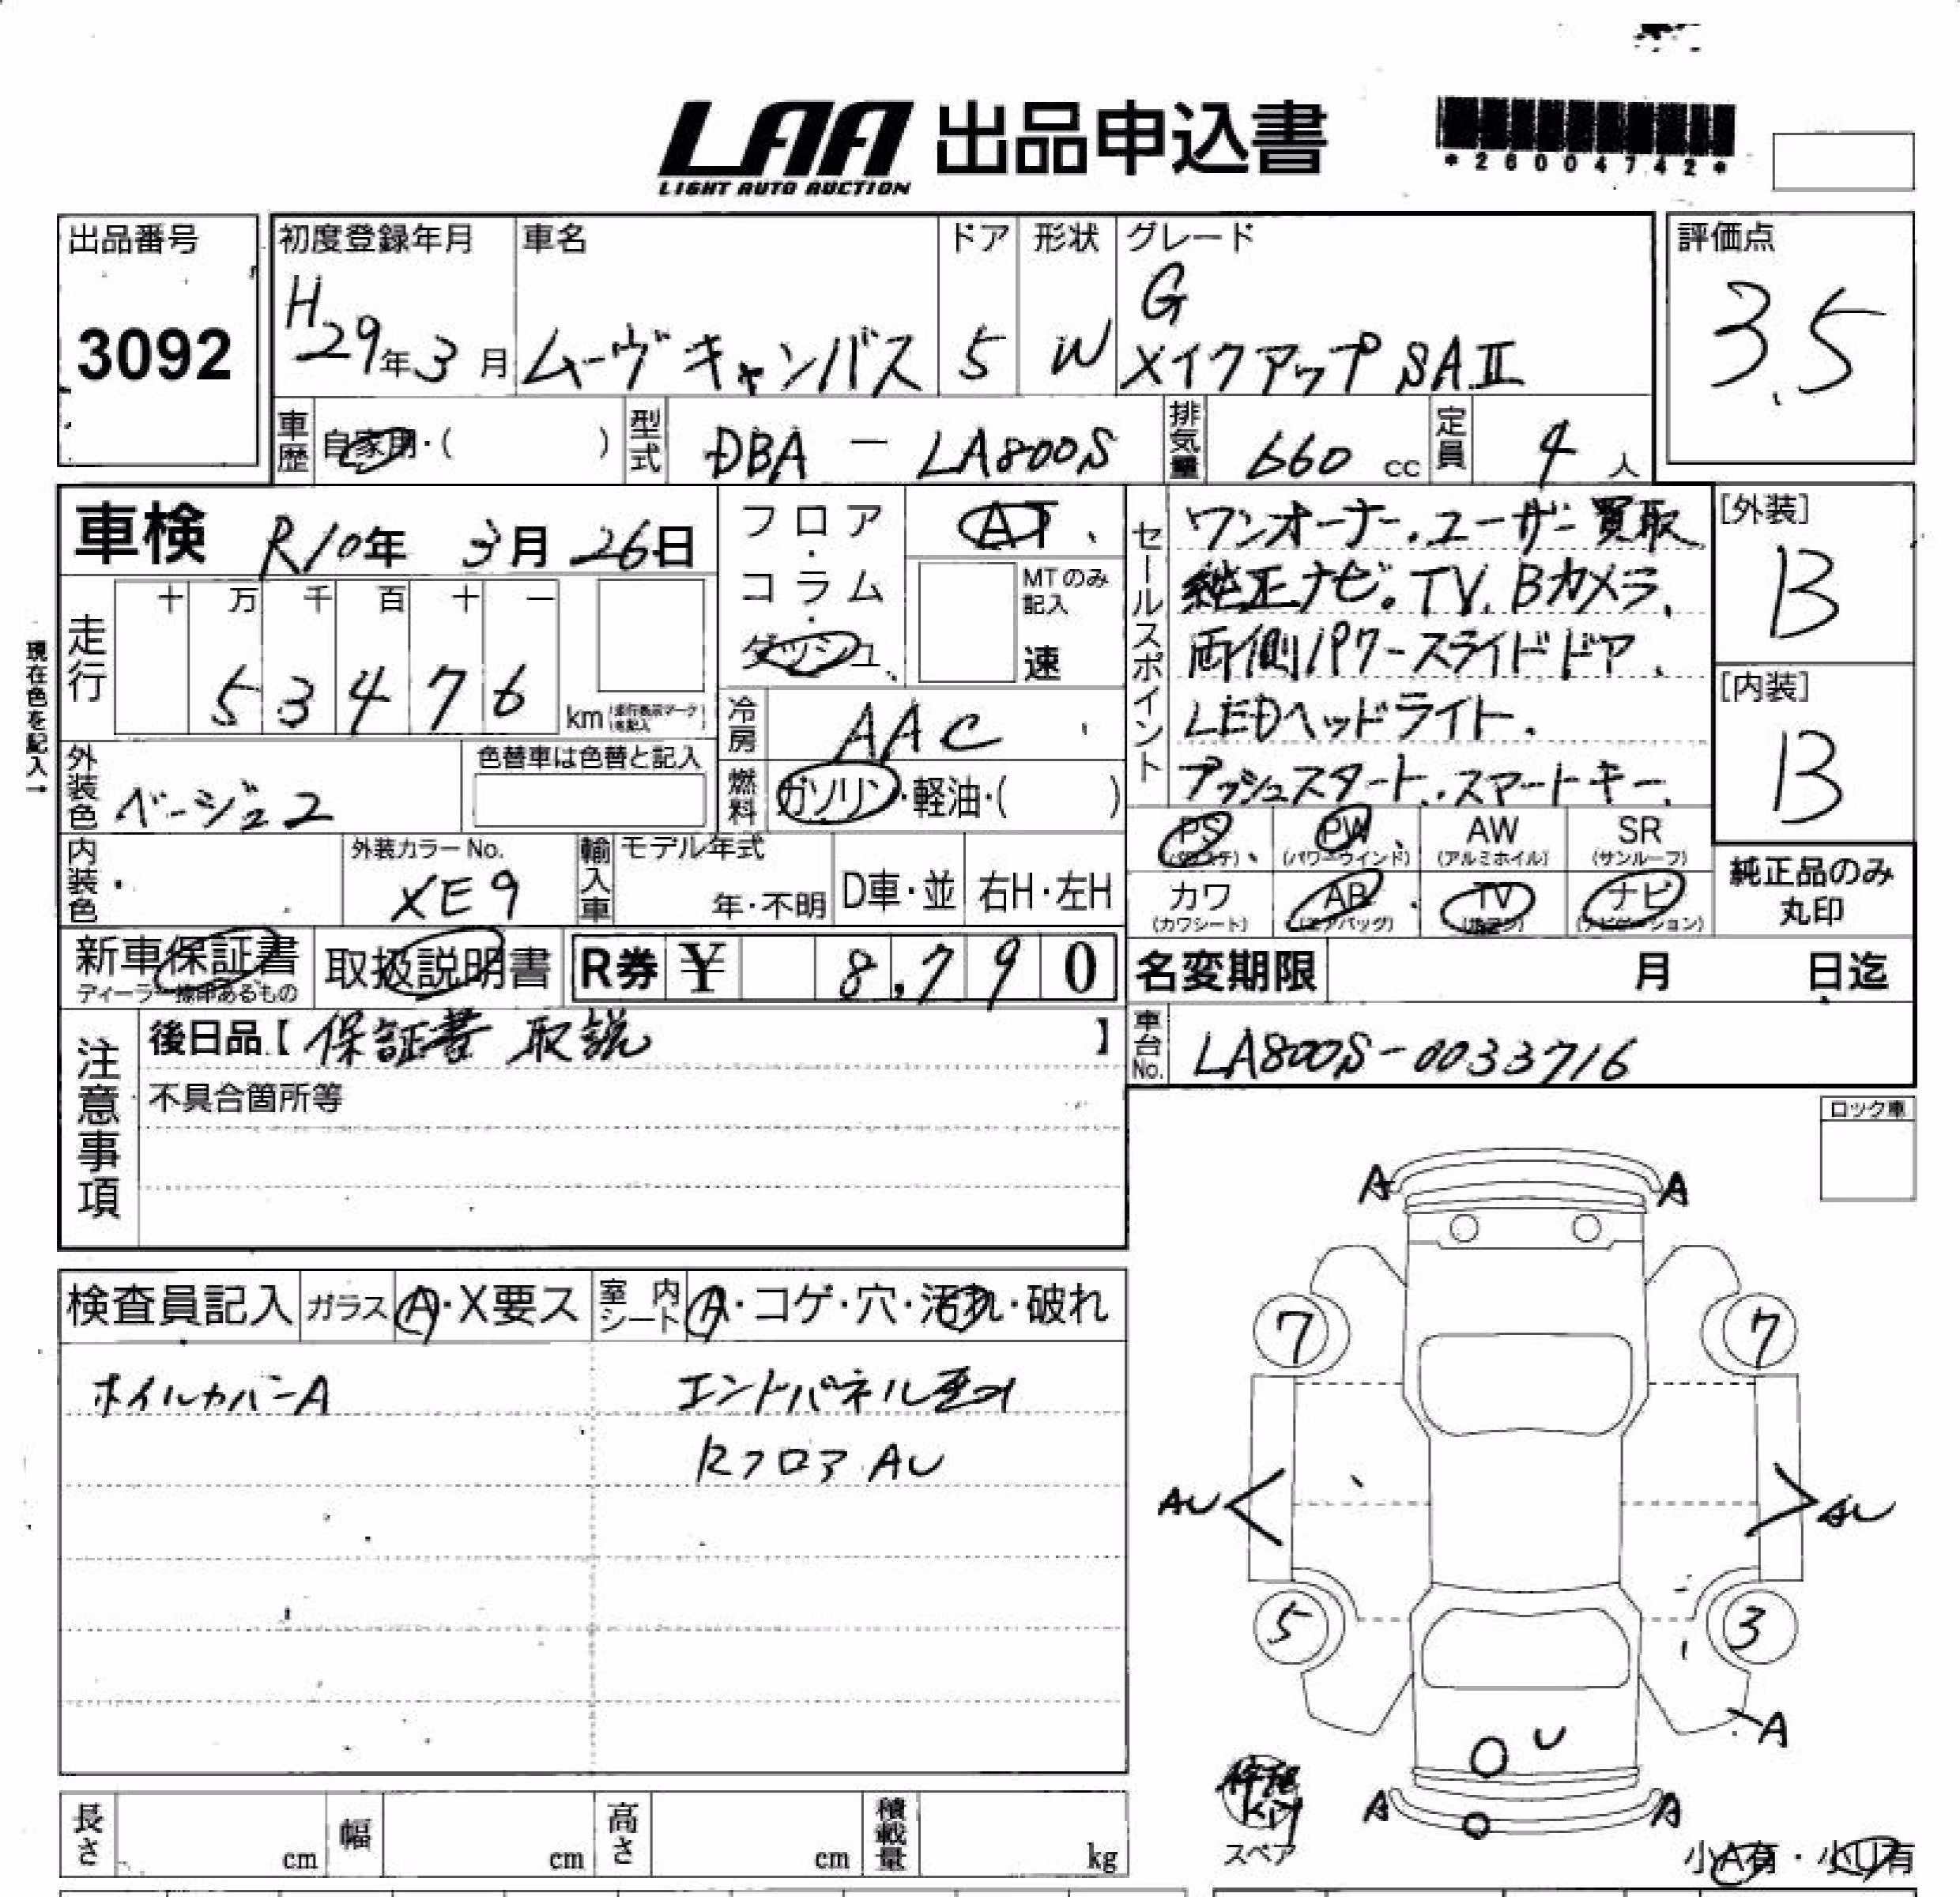 LAA 出品申込書
LIGHT AUTO AUCTION
*26004742*
出品番号
3092
初度登録年月
H29年3月
車名
ムーヴキャンバス
ドア
5
形状
W
グレード
G
メイクアップ SAⅡ
評価点
3.5
車歴
自家用・( )
型式
DBA - LA800S
排気量
660 cc
定員
4人
車検 R10年 3月26日
現在色を記入→
走行
十 万 千 百 十 一
5 3 4 7 6 km
フロア・コラム・ダッシュ
AT
MTのみ記入
速
冷房
AAC
燃料
ガソリン・軽油・( )
外装色
ベージュ2
色替車は色替と記入
内装色
外装カラーNo.
XE9
輸入車
モデル年式
年・不明
D車・並
右H・左H
セールスポイント
ワンオーナー.ユーザー買取
純正ナビ。TV.Bカメラ.
両側パワースライドドア.
LEDヘッドライト.
プッシュスタート.スマートキー.
[外装]
B
[内装]
B
PS (パワステ)
PW (パワーウインド)
AW (アルミホイル)
SR (サンルーフ)
カワ (カワシート)
AB (エアバッグ)
TV
ナビ (ナビゲーション)
純正品のみ
丸印
新車保証書
ディーラー捺印あるもの
取扱説明書
R券 ¥ 8,790
名変期限 月 日迄
車台No.
LA800S-0033716
注意事項
後日品【保証書 取説】
不具合箇所等
ロック車
検査員記入
ガラス A・X要ス
室内シート A・コゲ・穴・汚れ・破れ
ホイルカバーA
エンドパネル歪
Rフロア AU
A A
7 7
AU AU
5 3
A
U
A A
スペア
小A有・小U有
長さ cm
幅 cm
高さ cm
積載量 kg